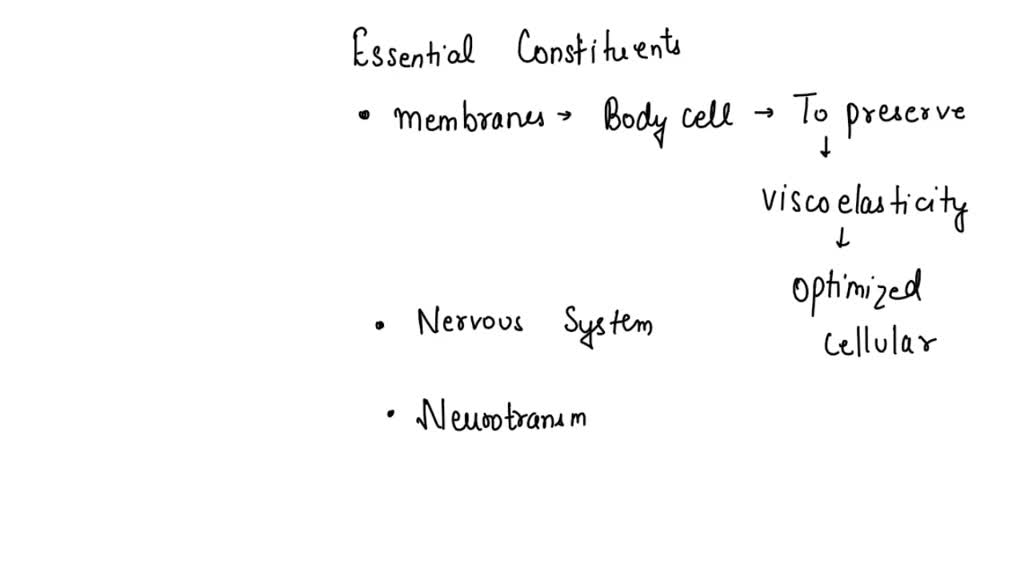 Essential Constituents
• membranes → Body cell → To preserve
↓
viscoelasticity
↓
optimized
cellular
• Nervous System
• Neurotransm